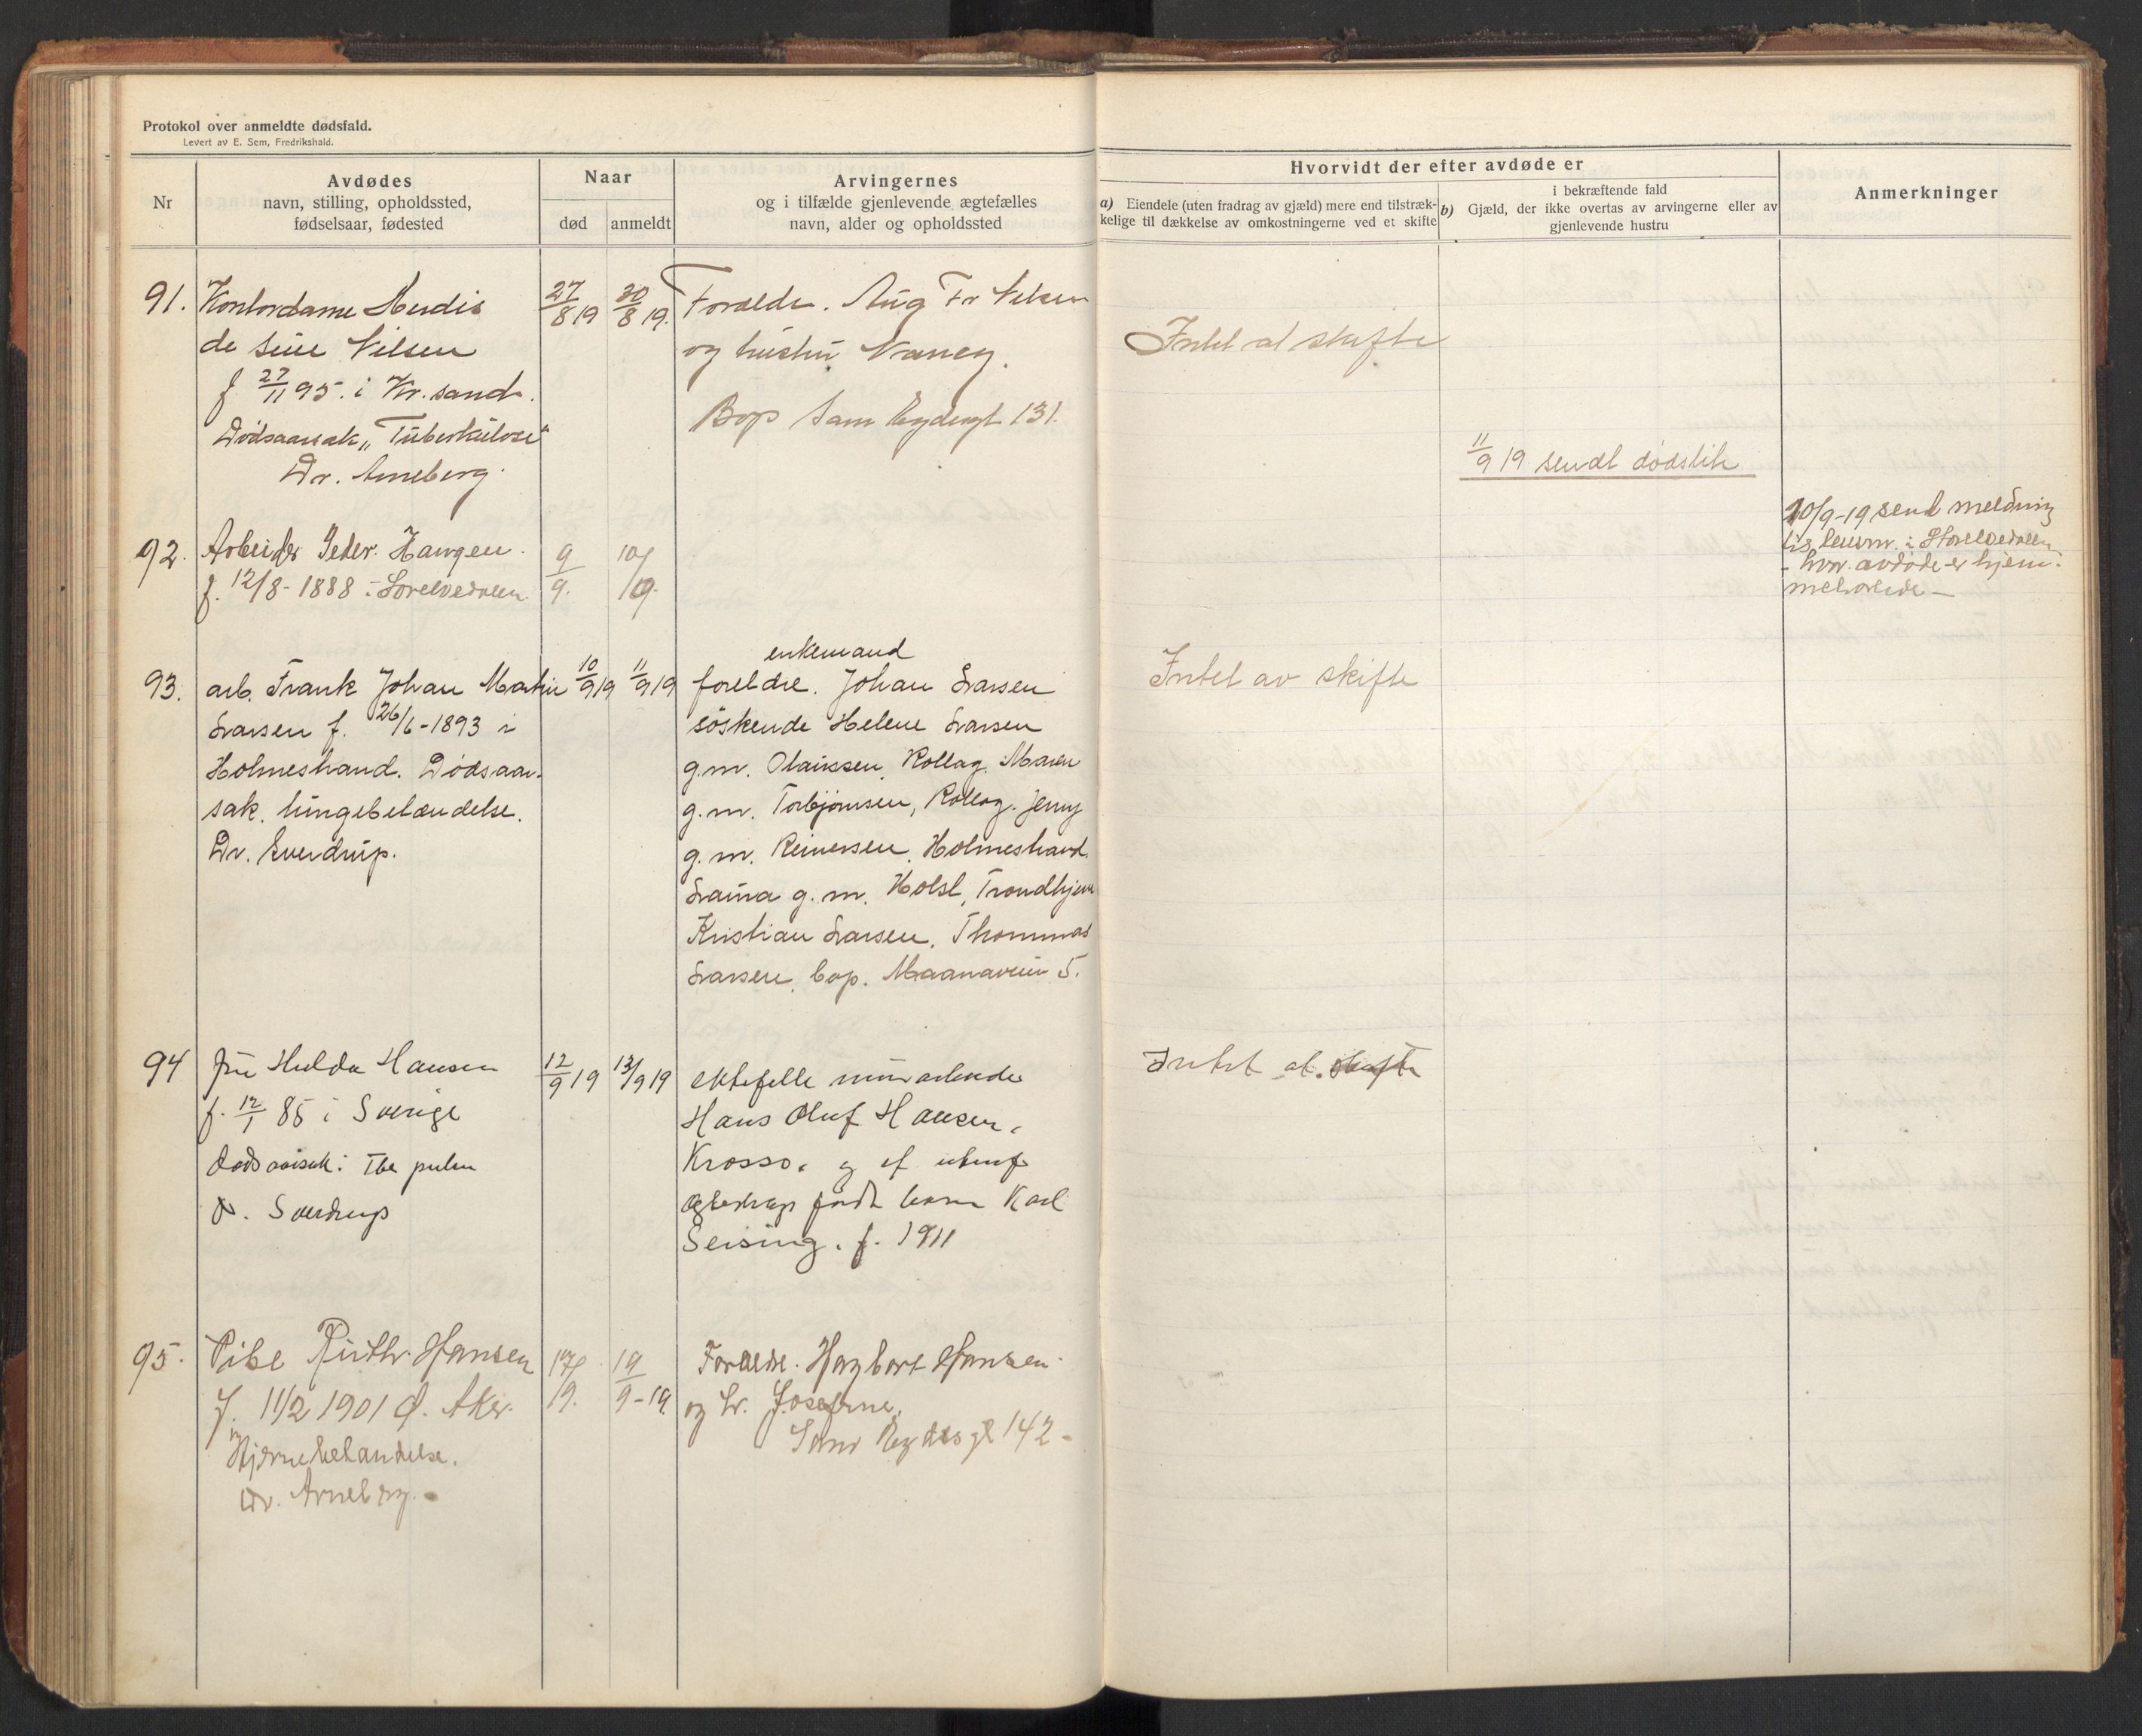 Protokol over anmeldte dødsfald.
Levert av E. Sem, Fredrikshald.
Nr
Avdødes
navn, stilling, opholdssted,
fødselsaar, fødested
Naar
død
anmeldt
Arvingernes
og i tilfælde gjenlevende ægtefælles
navn, alder og opholdssted
Hvorvidt der efter avdøde er
a) Eiendele (uten fradrag av gjæld) mere end tilstræk-
kelige til dækkelse av omkostningerne ved et skifte
i bekræftende fald
b) Gjæld, der ikke overtas av arvingerne eller av
gjenlevende hustru
Anmerkninger
91. Kontordame
Nilsen
f 27/11 95. i Kr.sand.
Dödsaarsak „Tuberkulose"
Dr. Arneberg.
27/8 19
30/8 19.
Forældr. Aug Fr Nilsen
og hustru Nancy.
Bop Sam Eydesgt 131.
Intet at skifte
11/9 19 sendt dödsliste
92. Arbeider Peder Haugen
f. 12/8-1888 i Storelvedalen
9/9.
10/9
19.
10/9-19 send melding
til lensm. i Storelvedalen
- hvor avdöde er hjem-
mehörende -
93. arb. Frank Johan Martin
Larsen f. 26/6-1893 i
Holmestrand. Dödsaar-
sak. lungebetændelse.
Dr. Sverdrup.
10/9 19
11/9 19
enkemand
foreldre. Johan Larsen
söskende Helene Larsen
g.m. Olaussen, Rollag. Maren
g.m. Torbjörnsen, Rollag. Jenny
g.m. Reinersen, Holmestrand.
Laura g.m. Holst, Trondhjem
Kristian Larsen. Thommas
Larsen, bop. Maanaveien 5.
Intet av skifte
94 fru Hulda Hansen
f. 12/1 85 i Sverige
dødsaarsak: Tbc pulm
Dr. Sverdrup
12/9 19
13/9 19
ektefelle murarbeider
Hans Oluf Hansen,
Krosso. og et utenf
egteskap født barn Karl
f. 1911
Intet at skifte
95. Pike Ruth Hansen
f. 11/2 1901 Ø. Aker.
Hjernebetændelse.
Dr. Arneberg.
17/9
19.
19/9-19.
Forældre. Hagbart Hansen
og h. Josefine.
Sam Eydesgt 142-